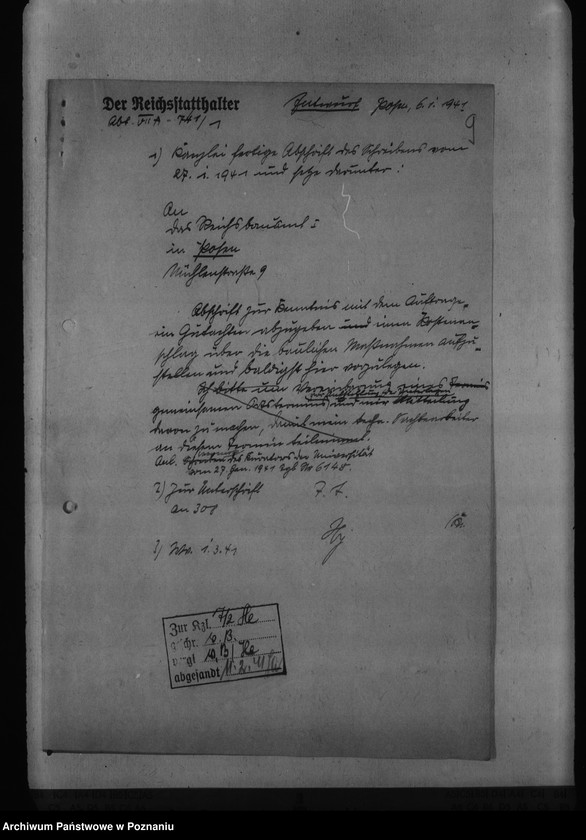 Der Reichsstatthalter
Entwurf Posen, 6. 2. 1941
Abt. VII A - 741/1
9
1) Kanzlei fertige Abschrift des Schreibens vom
27. 1. 1941 und setze darunter:
An
das Reichsbauamt
in Posen
Mühlenstraße 9
Abschrift zur Kenntnis mit dem Auftrage,
ein Gutachten abzugeben und einen Kostenan-
schlag über die baulichen Maßnahmen aufzu-
stellen und baldigst hier vorzulegen.
Ich bitte um Vereinbarung eines Termins
gemeinsamen und mir Mitteilung
davon zu machen, damit mein Sachbearbeiter
an diesem Termin teilnimmt.
Anl. Schreiben des Kurators der Universität
vom 27. Jan. 1941 Tgb Nr 6140.
2) Zur Unterschrift
an 308
3) Wv. 1.3.41
Zur Kzl. 7/2 He
geschr. 10.
vergl. 10.
abgesandt 11. 2. 41
Archiwum Państwowe w Poznaniu